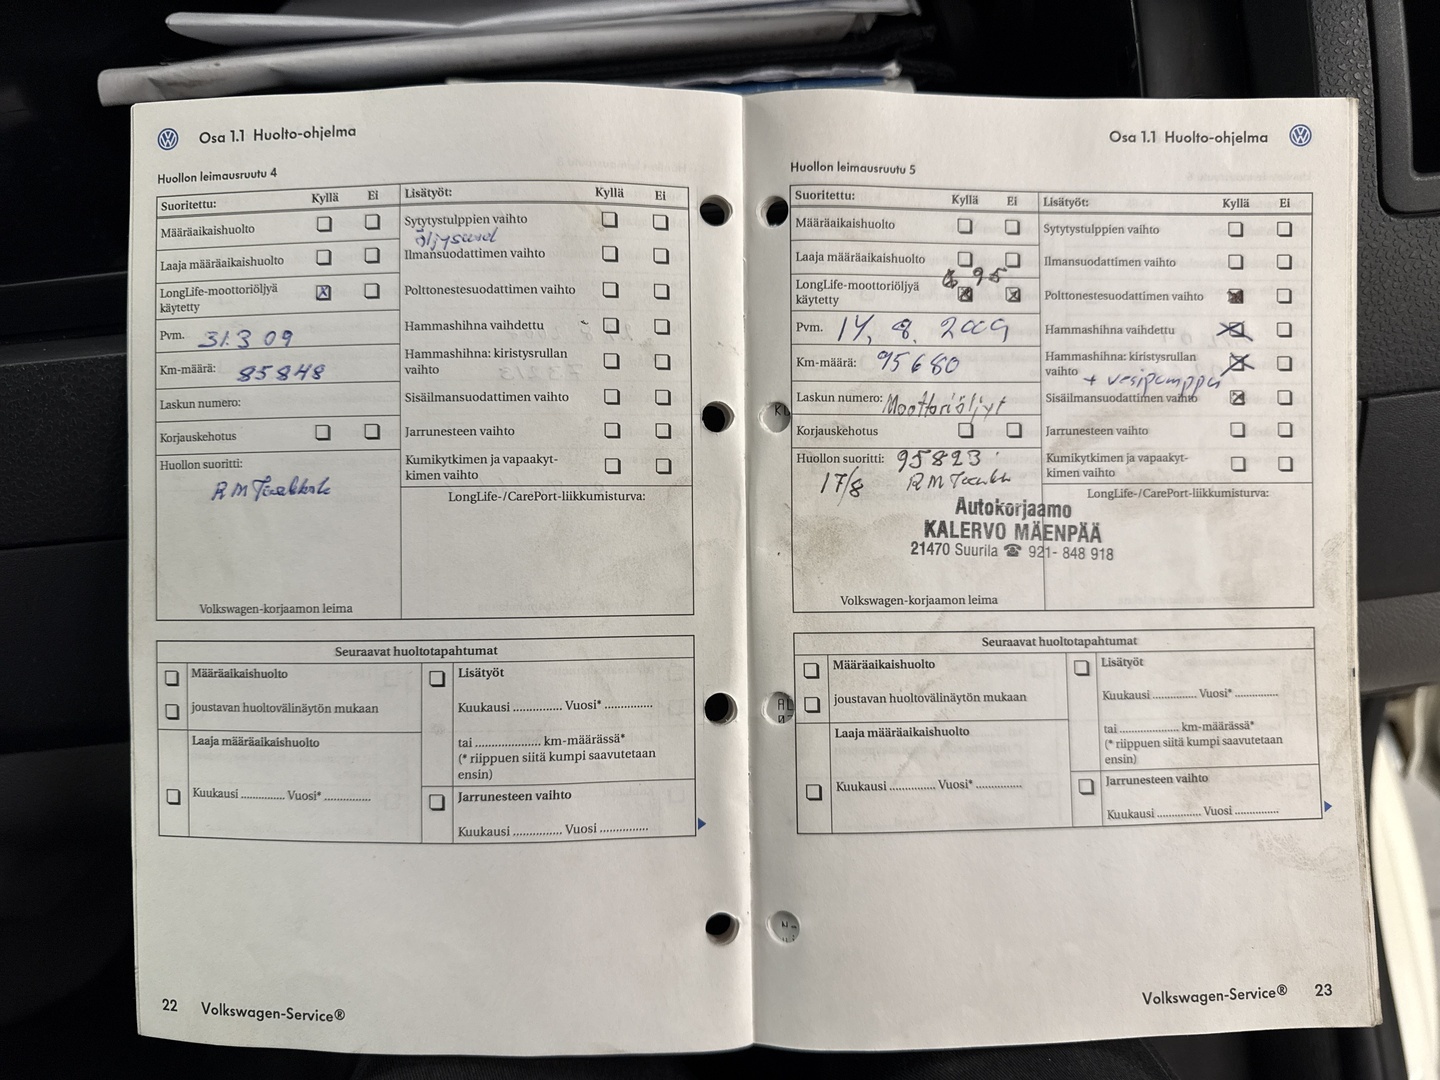 Osa 1.1 Huolto-ohjelma
Huollon leimausruutu 4
Suoritettu: Kyllä Ei
Määräaikaishuolto
Laaja määräaikaishuolto
LongLife-moottoriöljyä
käytetty
Pvm. 31.3 09
Km-määrä: 85848
Laskun numero:
Korjauskehotus
Huollon suoritti:
RM
Volkswagen-korjaamon leima
Lisätyöt: Kyllä Ei
Sytytystulppien vaihto
Ilmansuodattimen vaihto
Polttonestesuodattimen vaihto
Hammashihna vaihdettu
Hammashihna: kiristysrullan
vaihto
Sisäilmansuodattimen vaihto
Jarrunesteen vaihto
Kumikytkimen ja vapaakyt-
kimen vaihto
LongLife-/CarePort-liikkumisturva:
Seuraavat huoltotapahtumat
Määräaikaishuolto
joustavan huoltovälinäytön mukaan
Laaja määräaikaishuolto
Kuukausi ............. Vuosi* ..............
Lisätyöt
Kuukausi .............. Vuosi* ..............
tai ..................... km-määrässä*
(* riippuen siitä kumpi saavutetaan
ensin)
Jarrunesteen vaihto
Kuukausi .............. Vuosi ..............
22 Volkswagen-Service®
Osa 1.1 Huolto-ohjelma
Huollon leimausruutu 5
Suoritettu: Kyllä Ei
Määräaikaishuolto
Laaja määräaikaishuolto
LongLife-moottoriöljyä
käytetty
Pvm. 14. 8. 2009
Km-määrä: 95680
Laskun numero: Moottoriöljyt
Korjauskehotus
Huollon suoritti: 95823
17/8 RM
Autokorjaamo
KALERVO MÄENPÄÄ
21470 Suurila ☎ 921- 848 918
Volkswagen-korjaamon leima
Lisätyöt: Kyllä Ei
Sytytystulppien vaihto
Ilmansuodattimen vaihto
Polttonestesuodattimen vaihto
Hammashihna vaihdettu
Hammashihna: kiristysrullan
vaihto
+ vesipumppu
Sisäilmansuodattimen vaihto
Jarrunesteen vaihto
Kumikytkimen ja vapaakyt-
kimen vaihto
LongLife-/CarePort-liikkumisturva:
Seuraavat huoltotapahtumat
Määräaikaishuolto
joustavan huoltovälinäytön mukaan
Laaja määräaikaishuolto
Kuukausi .............. Vuosi* ..............
Lisätyöt
Kuukausi ............. Vuosi* .............
tai ..................... km-määrässä*
(* riippuen siitä kumpi saavutetaan
ensin)
Jarrunesteen vaihto
Kuukausi ............. Vuosi .............
Volkswagen-Service® 23